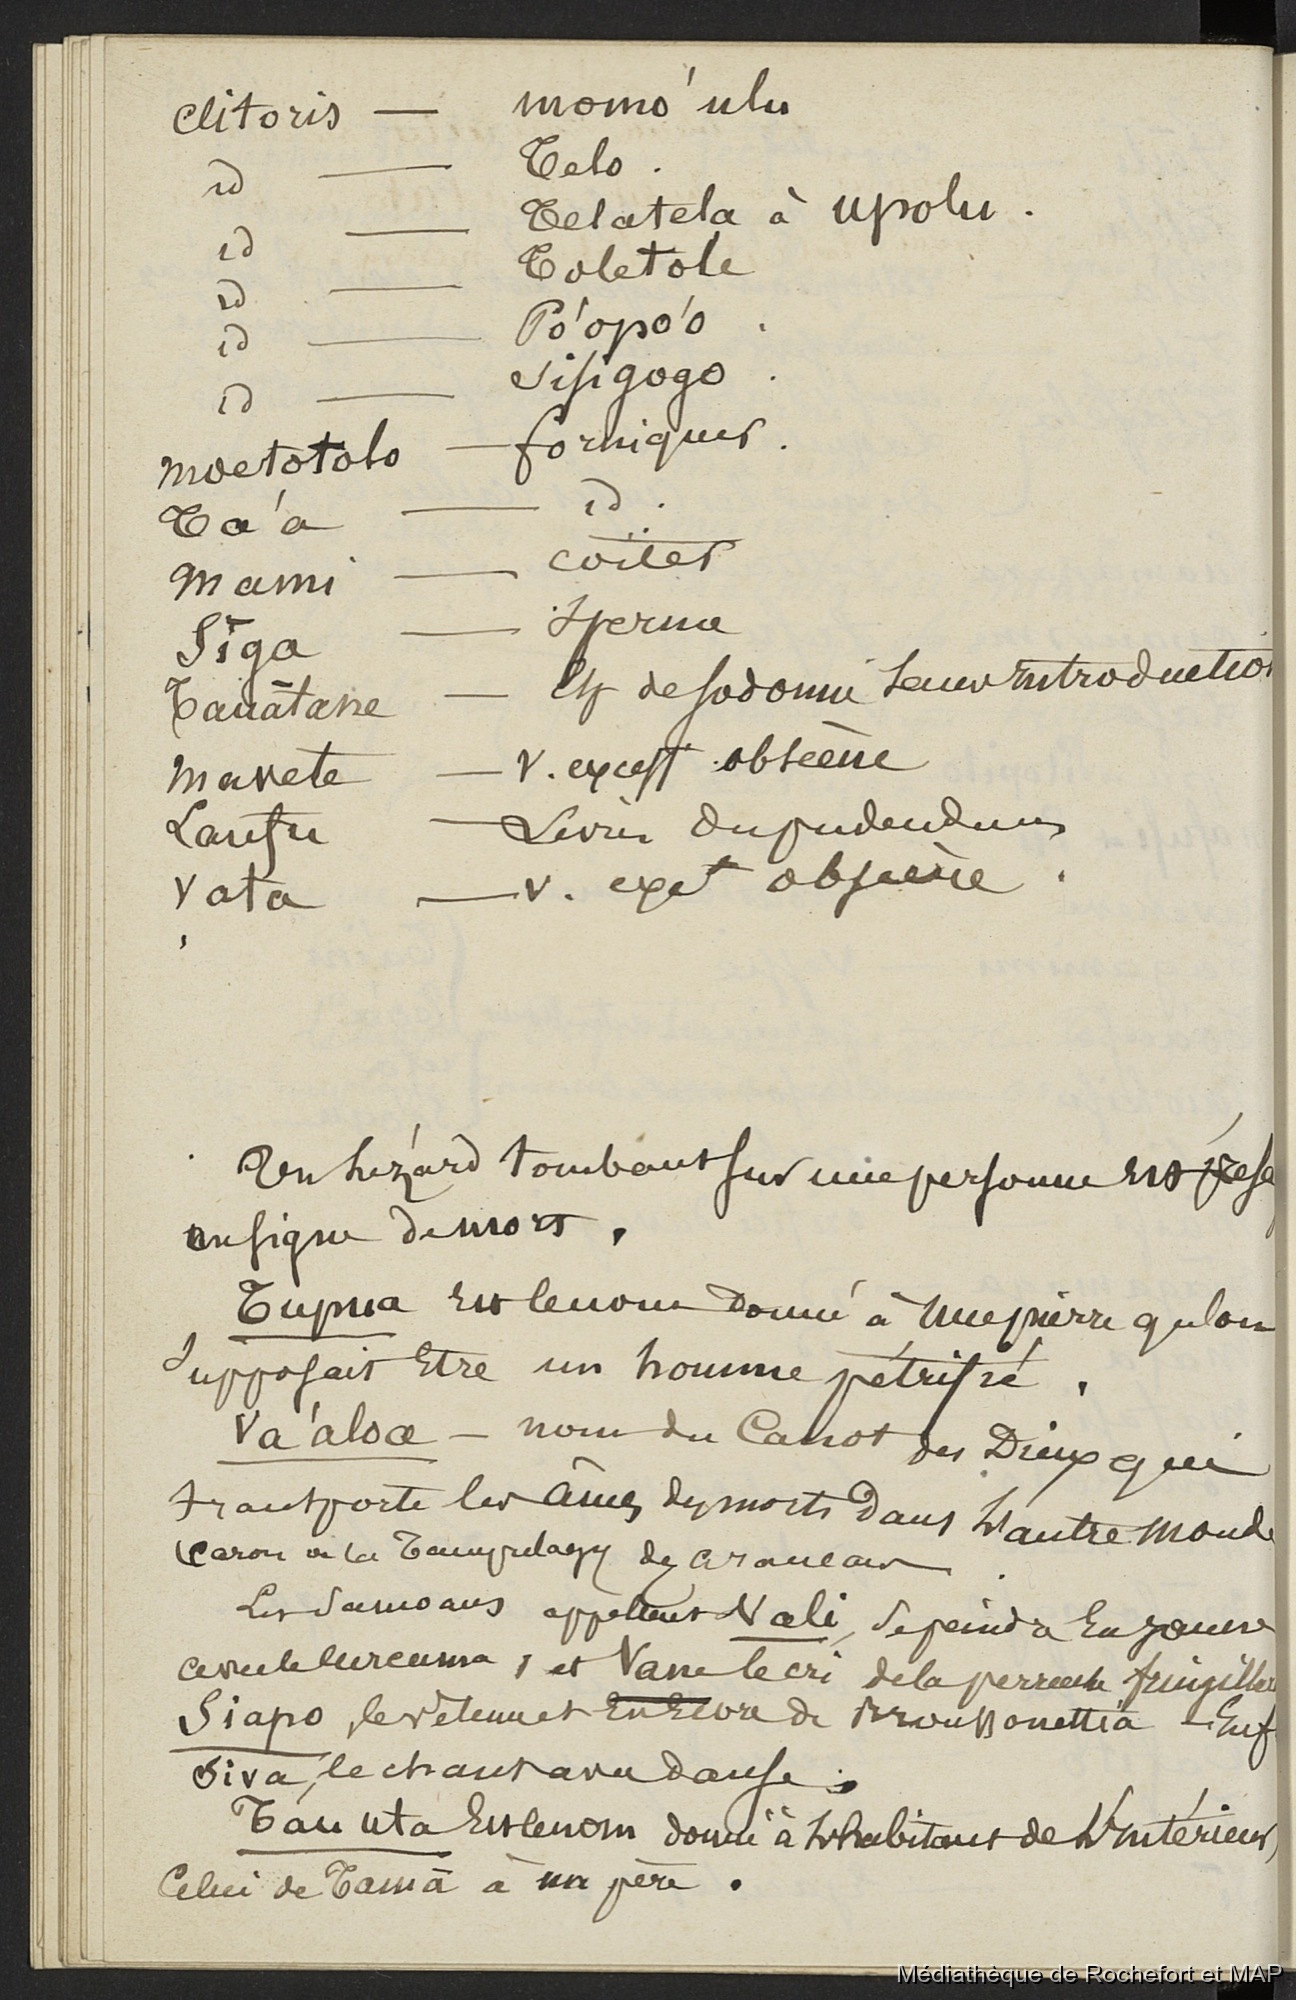 Clitoris — momo'ulu
id — Telo.
id — Telatela à upolu.
id — Toletole
id — Po'opo'o.
id — Sisigogo.
moetotolo — forniquer.
Ta'a — id.
mami — coïter
Siga — Sperme
Tauatane — de sodomie sans introduction
Mavete — v. excess obscène
Laufu — Levres du pudendum
Vata — v. exc.t obscène.
Un lézard tombant sur une personne est
un signe de mort.
Tupua est le nom donné à une pierre qu'on
supposait être un homme pétrifié.
Va'aloa — nom du Canot des Dieux qui
transporte les âmes des morts dans l'autre monde
Caron ou la des araucans.
Les Samoans appellent Vali, se peindre en jaune
avec le curcuma, et Vane le cri de la perruche
Siapo, le vêtement en écorce de Broussonettia —
Siva, le chant avec danse.
Tau uta est le nom donné à l'habitant de l'intérieur,
Celui de Tama à un père.
Médiathèque de Rochefort et MAP